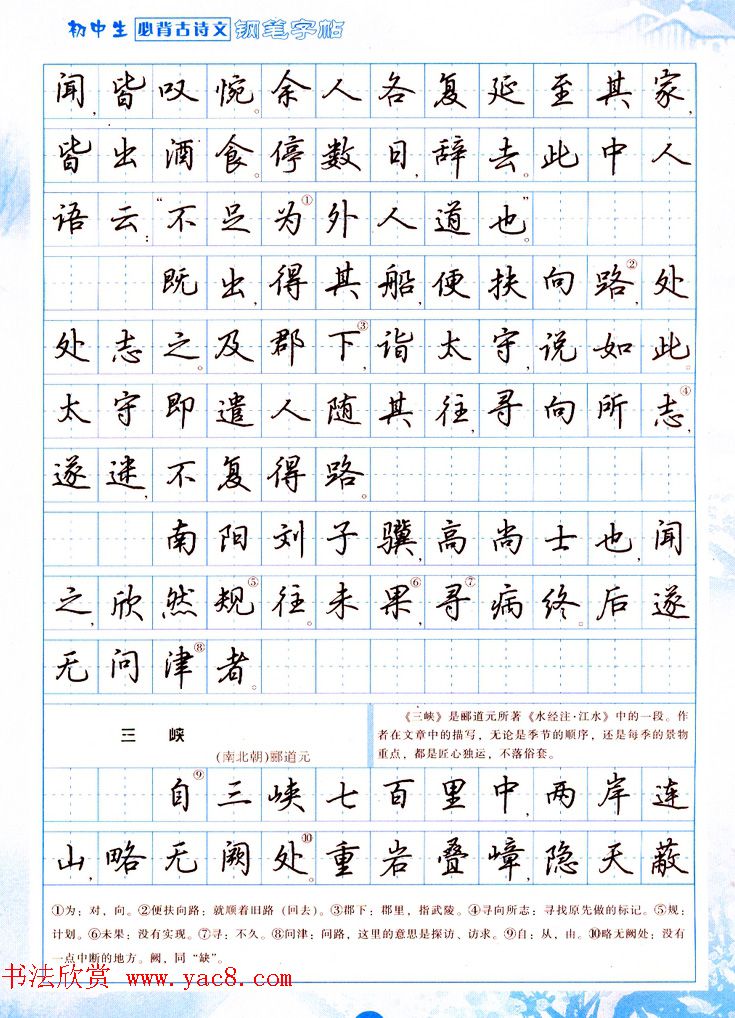 初中生 必背古诗文 钢笔字帖
闻,皆叹惋。余人各复延至其家,
皆出酒食。停数日,辞去。此中人
语云:“不足为①外人道也。”
既出,得其船,便扶向路②,处
处志之。及郡下③,诣太守,说如此。
太守即遣人随其往,寻向所志④,
遂迷,不复得路。
南阳刘子骥,高尚士也,闻
之,欣然规⑤往。未果⑥,寻⑦病终。后遂
无问津⑧者。
三 峡
(南北朝)郦道元
《三峡》是郦道元所著《水经注·江水》中的一段。作
者在文章中的描写,无论是季节的顺序,还是每季的景物
重点,都是匠心独运,不落俗套。
自⑨三峡七百里中,两岸连
山,略无阙处⑩。重岩叠嶂,隐天蔽
①为:对,向。②便扶向路:就顺着旧路(回去)。③郡下:郡里,指武陵。④寻向所志:寻找原先做的标记。⑤规:
计划。⑥未果:没有实现。⑦寻:不久。⑧问津:问路,这里的意思是探访、访求。⑨自:从,由。⑩略无阙处:没有
一点中断的地方。阙,同“缺”。
书法欣赏 www.yac8.com